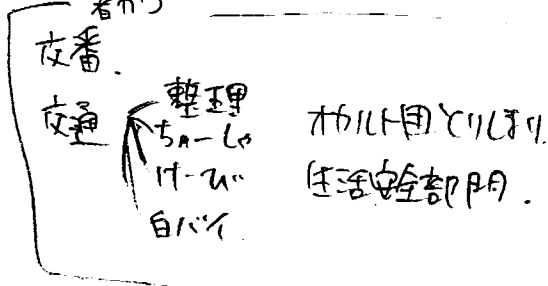 者かつ
交番.
交通
整理
ちゅーしゃ
けーび
白バイ
オカルト団とりしまり
生活安全部門.